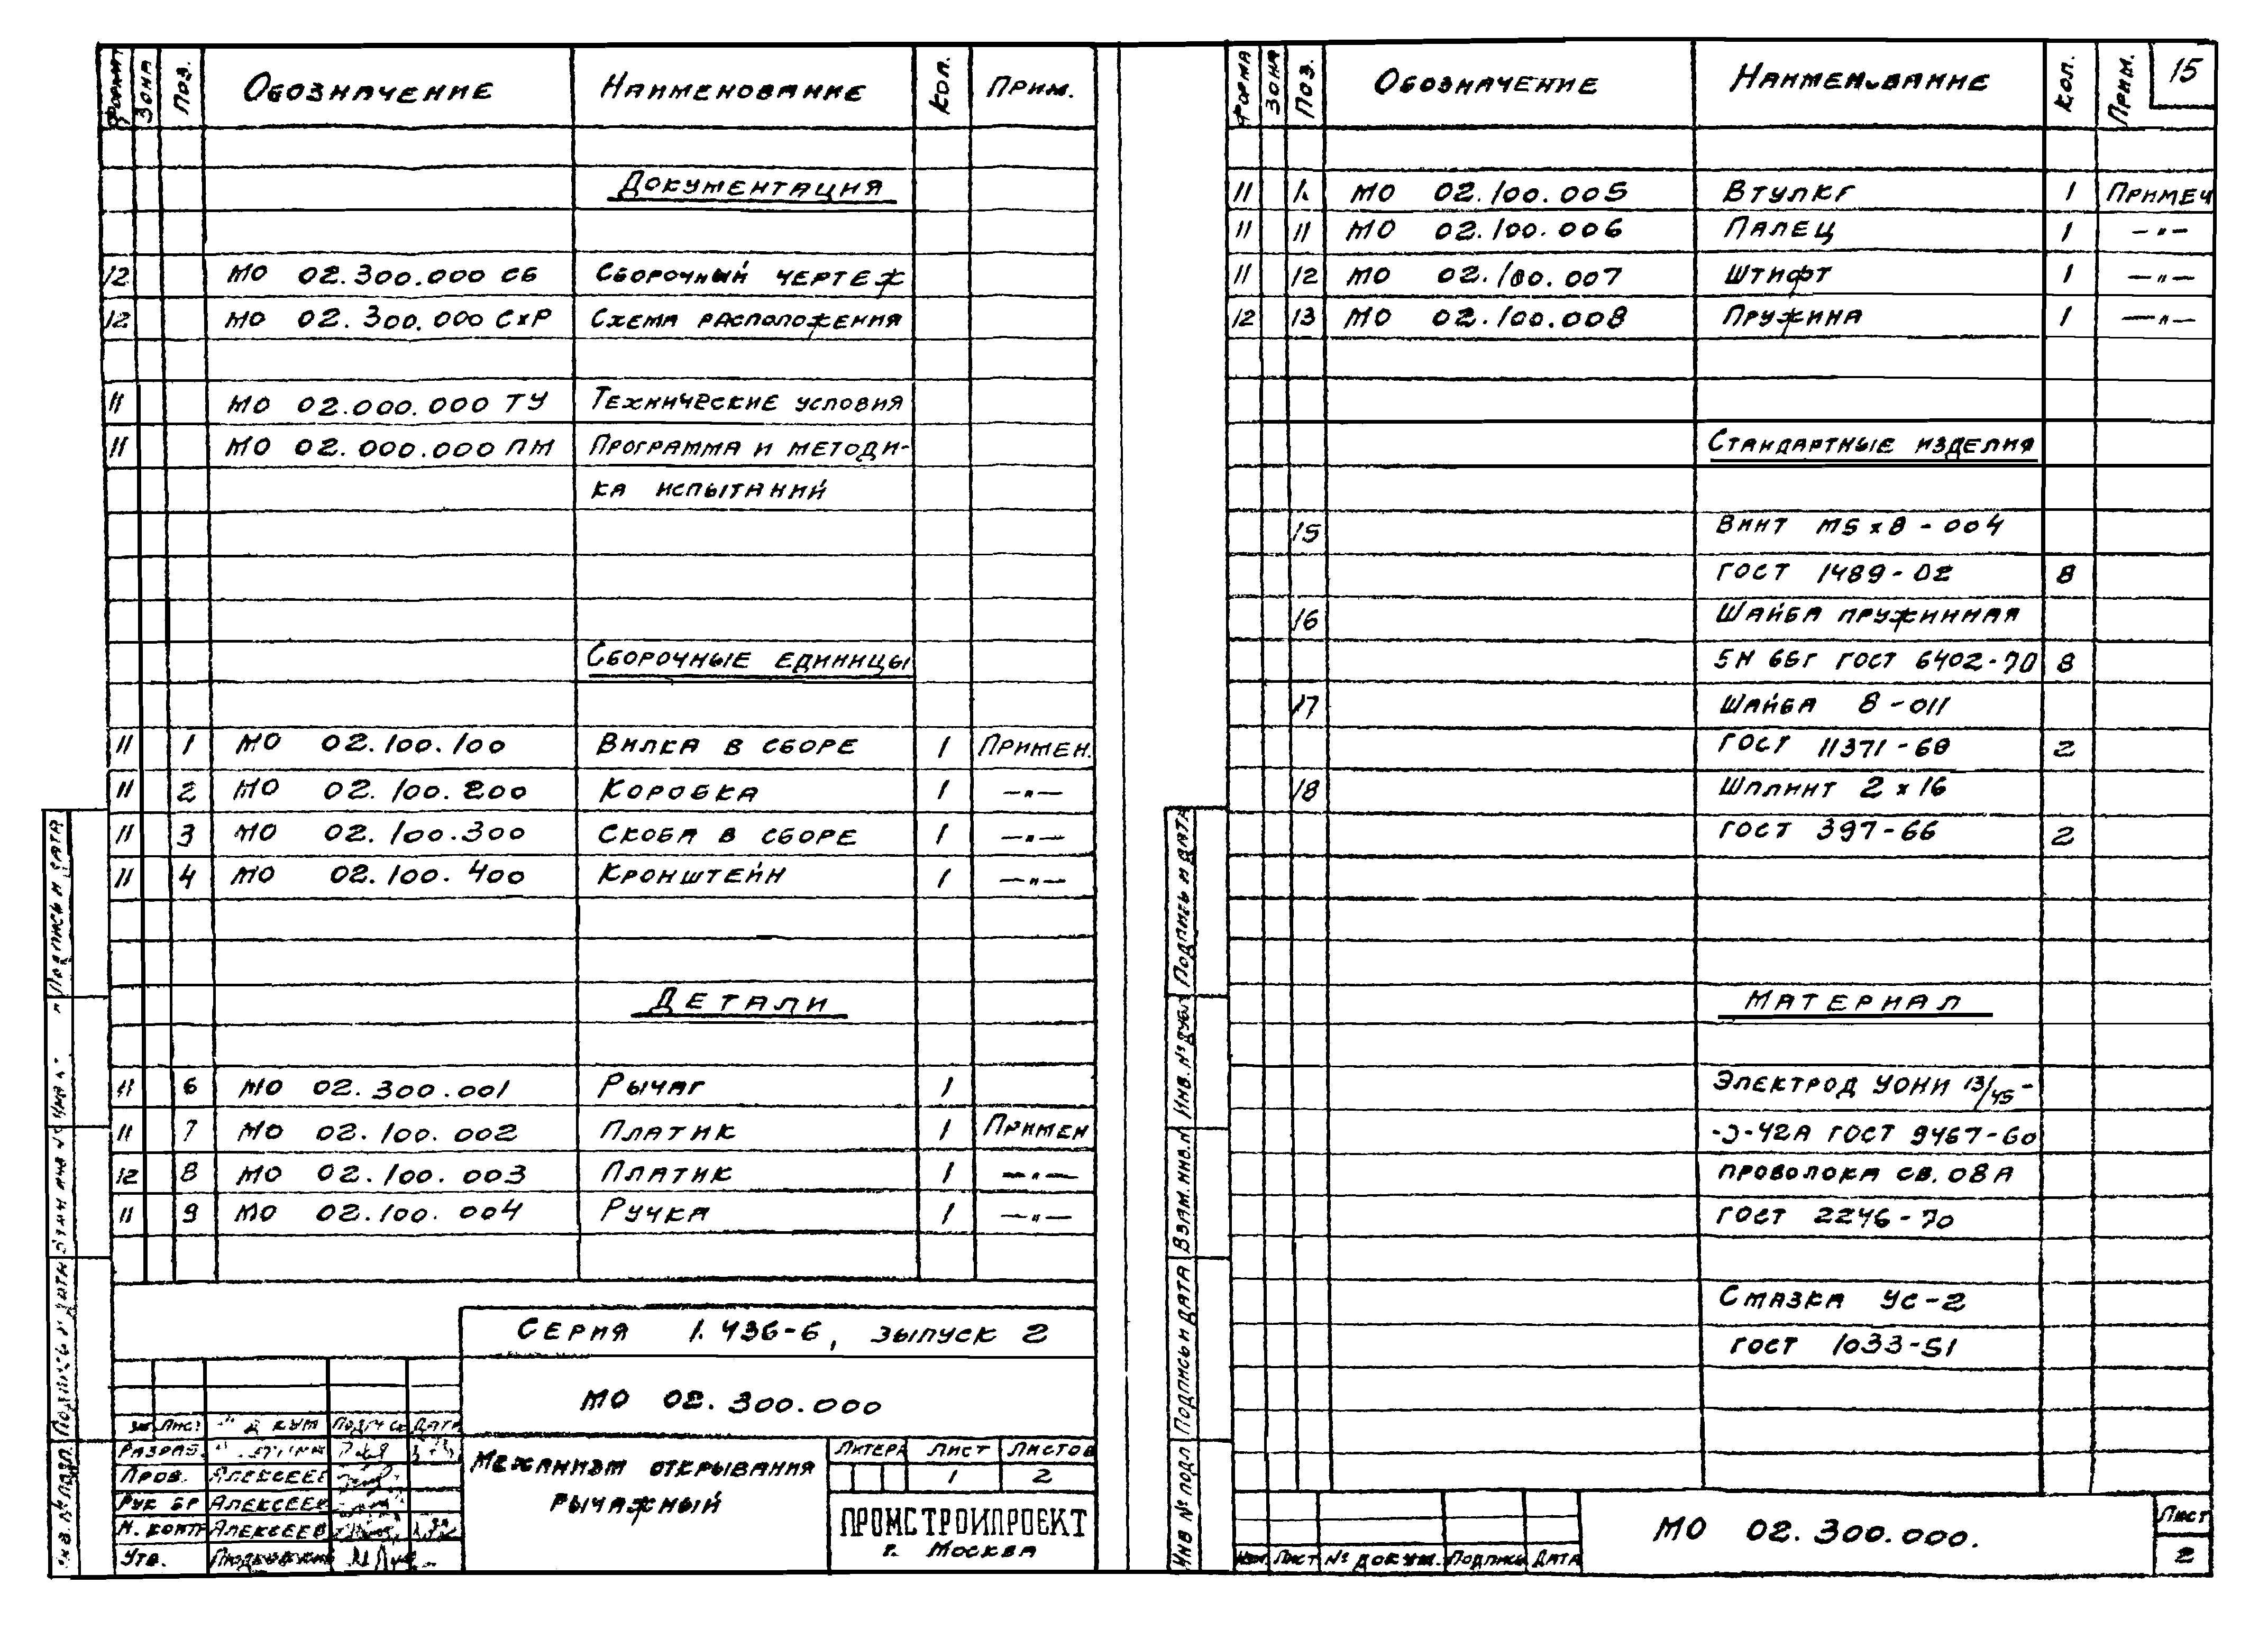 Формат Зона Поз. Обозначение Наименование Кол. Прим.
Документация
12 МО 02.300.000 СБ Сборочный чертеж
12 МО 02.300.000 СхР Схема расположения
11 МО 02.000.000 ТУ Технические условия
11 МО 02.000.000 ПМ Программа и методи-
ка испытаний
Сборочные единицы
11 1 МО 02.100.100 Вилка в сборе 1 Примен.
11 2 МО 02.100.200 Коробка 1 —„—
11 3 МО 02.100.300 Скоба в сборе 1 —„—
11 4 МО 02.100.400 Кронштейн 1 —„—
Детали
11 6 МО 02.300.001 Рычаг 1
11 7 МО 02.100.002 Платик 1 Примен
12 8 МО 02.100.003 Платик 1 —„—
11 9 МО 02.100.004 Ручка 1 —„—
Серия 1.436-6, выпуск 2
МО 02.300.000
Лист Подпись Дата
Разраб.
Пров. Алексеев
Рук бр Алексеев
Н. контр Алексеев
Утв.
Механизм открывания
рычажный
Литера Лист Листов
1 2
ПРОМСТРОЙПРОЕКТ
г. Москва
Подпись и дата
Подпись и дата
Инв. № подл.
Форма Зона Поз. Обозначение Наименование Кол. Прим. 15
11 МО 02.100.005 Втулка 1 Примеч
11 11 МО 02.100.006 Палец 1 —„—
11 12 МО 02.100.007 Штифт 1 —„—
12 13 МО 02.100.008 Пружина 1 —„—
Стандартные изделия
15 Винт М5х8-004
ГОСТ 1489-02 8
16 Шайба пружинная
5Н 65г ГОСТ 6402-70 8
17 Шайба 8-011
ГОСТ 11371-68 2
18 Шплинт 2х16
ГОСТ 397-66 2
Материал
Электрод УОНИ 13/45-
-Э-42А ГОСТ 9467-60
проволока св. 08А
ГОСТ 2246-70
Смазка УС-2
ГОСТ 1033-51
Подпись и дата
Инв. № дубл
Взам. инв. №
Подпись и дата
Инв № подл
Изм. Лист № докум. Подпись Дата
МО 02.300.000.
Лист
2